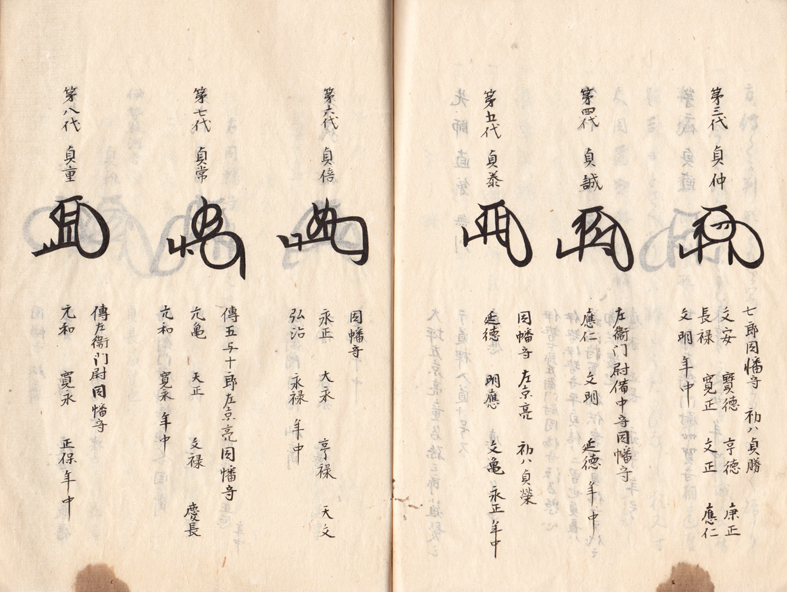 第三代 貞仲
七郎因幡守 初ハ貞勝
文安 寳徳 亨徳 康正
長禄 寛正 文正 應仁
文明年中
第四代 貞誠
左衞门尉備中守因幡守
應仁 文明 延徳年中
第五代 貞泰
因幡守 左京亮 初ハ貞榮
延徳 明應 文亀 永正年中
第六代 貞倍
因幡守
永正 大永 亨禄 天文
弘治 永禄年中
第七代 貞常
傳五与十郎左京亮因幡守
元亀 天正 文禄 慶長
元和 寛永年中
第八代 貞童
傳左衞门尉因幡守
元和 寛永 正保年中